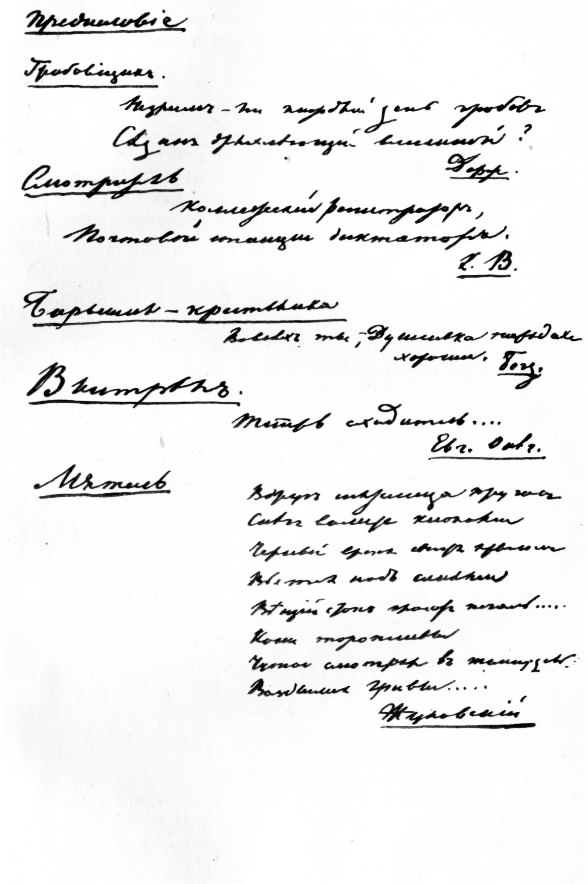 Предисловіе
Гробовщикъ.
Не зримъ-ли каждый день гробовъ
Сѣдинъ дряхлѣющей вселенной?
Держ.
Смотритель
Коллежскій регистраторъ,
Почтовой станціи диктаторъ.
К. В.
Барышня-крестьянка
Во всѣхъ ты, Душинька нарядахъ
хороша. Богд.
Выстрѣлъ.
Теперь сходитесь....
Евг. Онѣг.
Мятель
Вдругъ мятелица кругомъ
Снѣгъ валитъ клоками
Черный вранъ свистя крыломъ
Вьется надъ санями
Вѣщій стонъ гласитъ печаль.....
Кони торопливы
Чутко смотрятъ въ темну даль
Воздымая гривы.....
Жуковскій